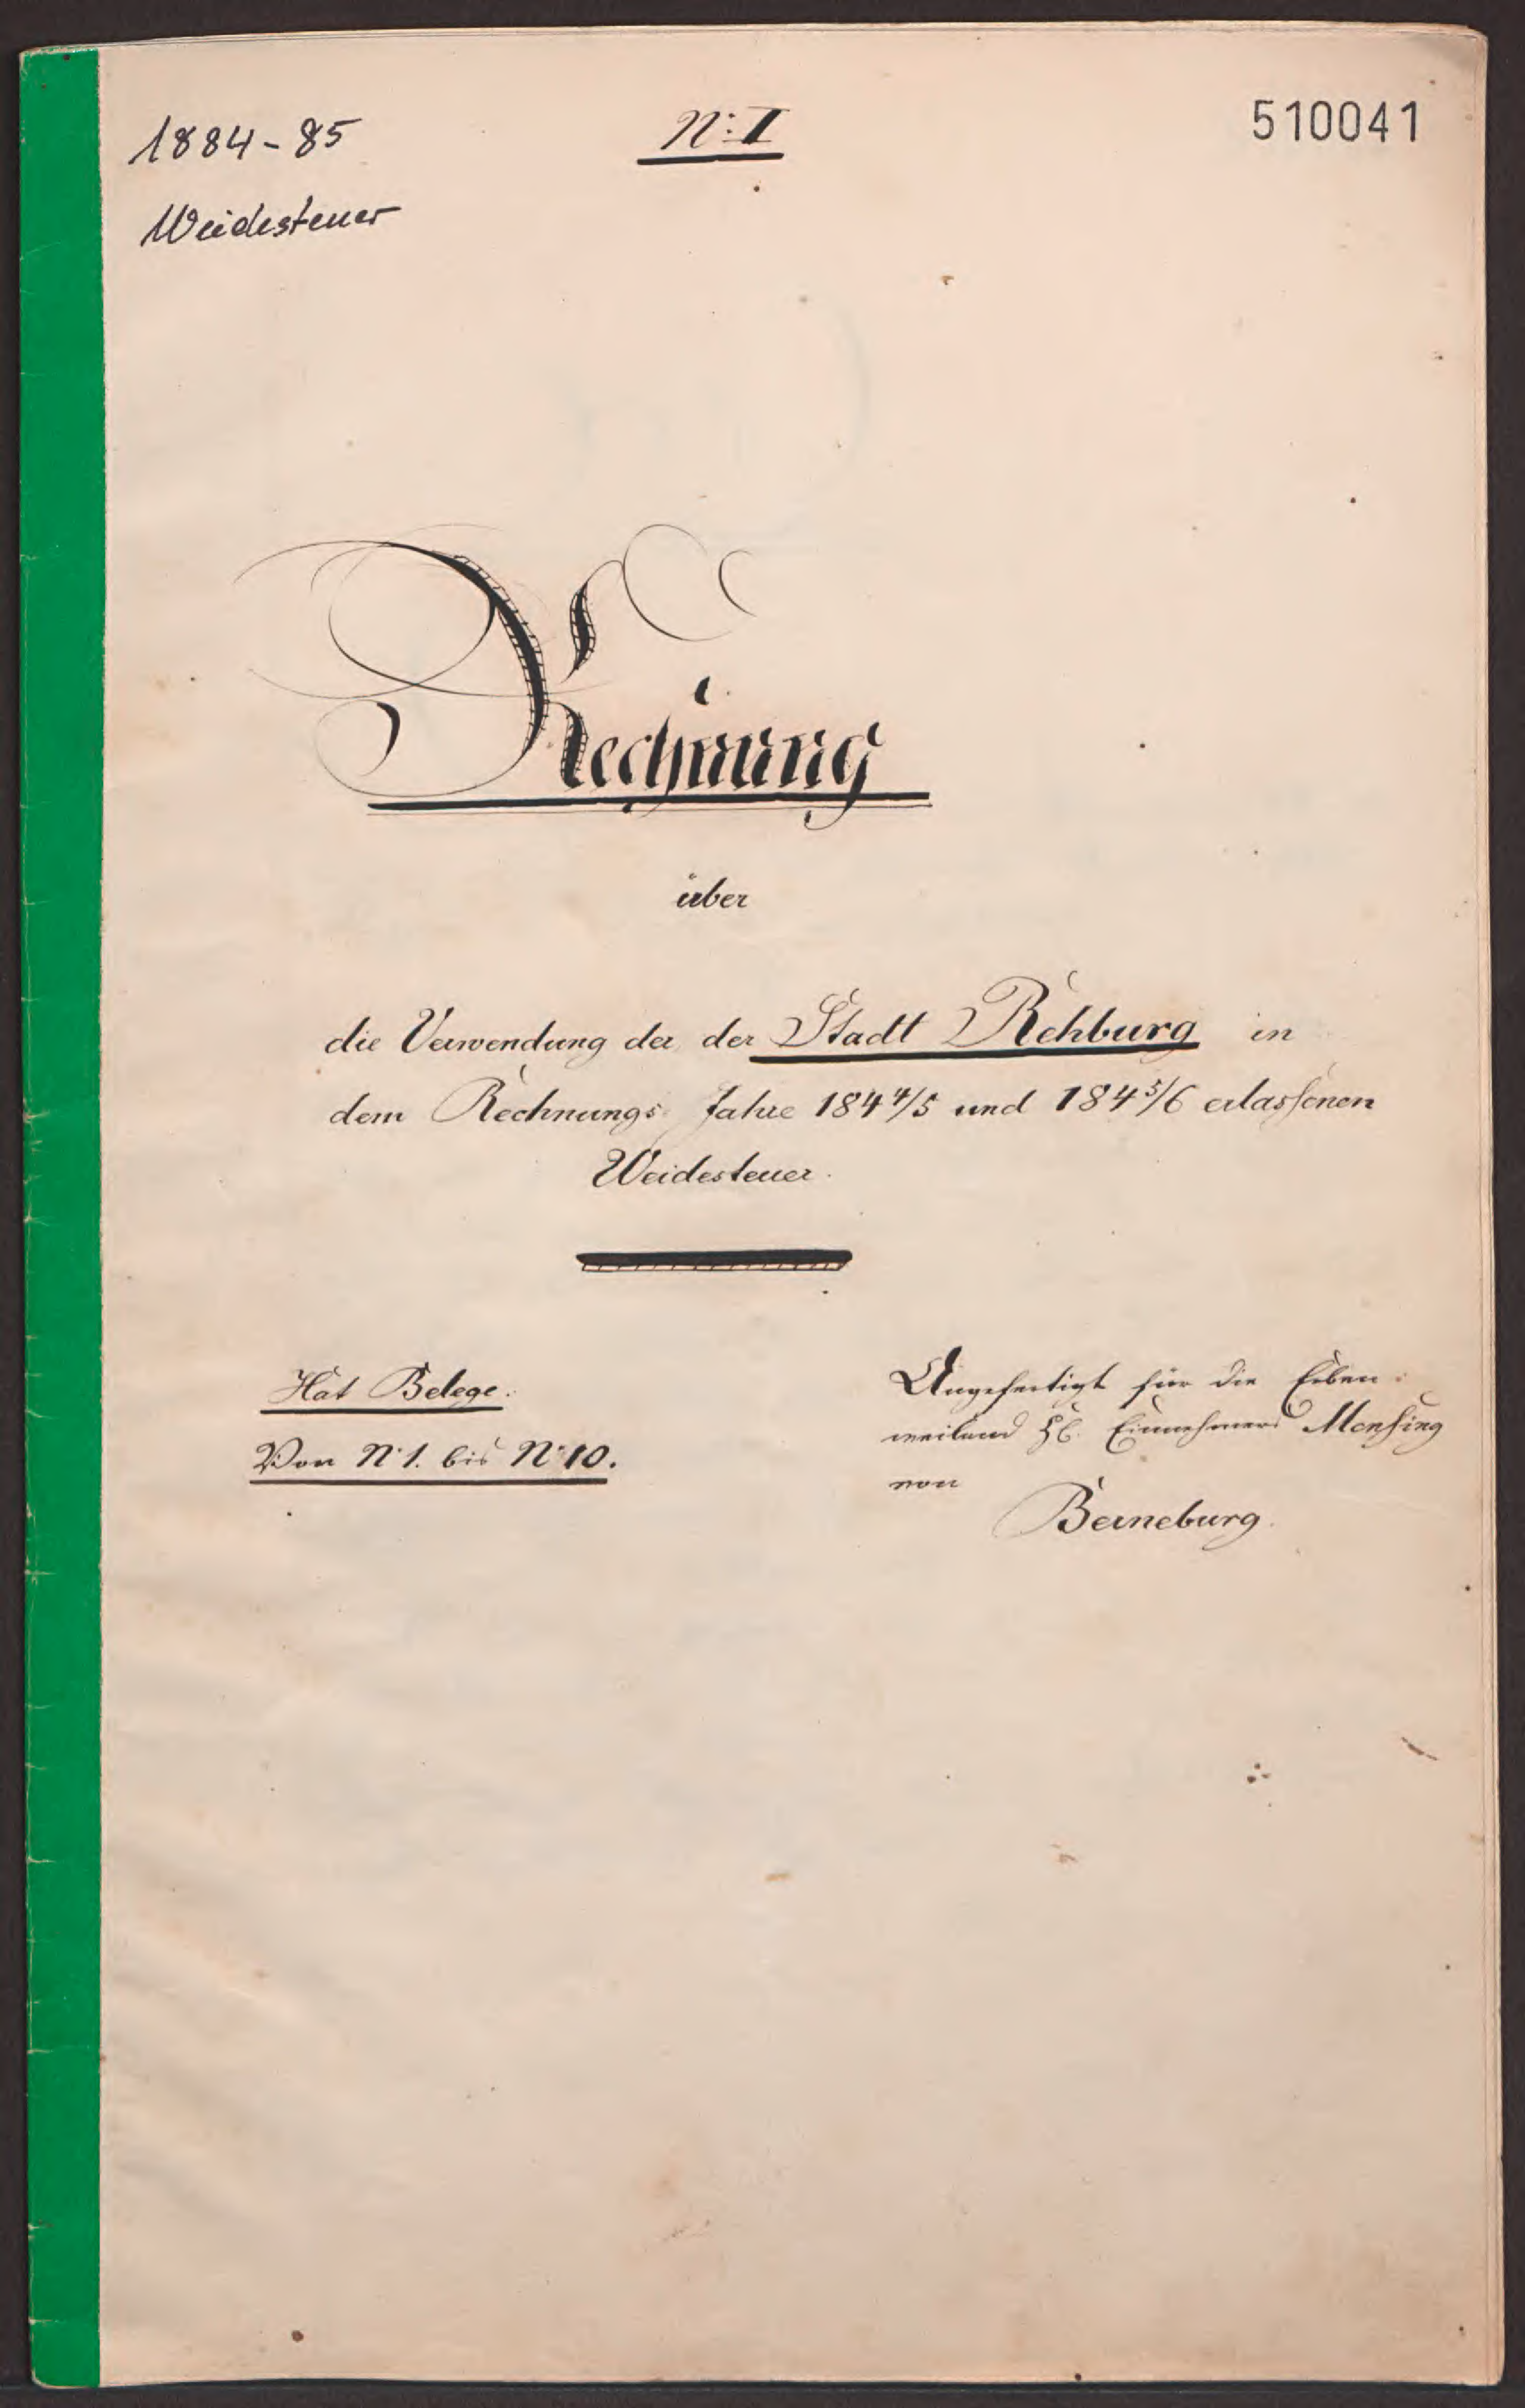 1884-85
Weidesteuer
N: I
510041
Rechnung
über
die Verwendung der der Stadt Rehburg in
dem Rechnungs Jahre 184 4/5 und 184 5/6 erlassenen
Weidesteuer.
Hat Belege.
Von N: 1. bis N: 10.
Angefertigt für die Erben
weiland Einnehmers Mensing
von
Berneburg.